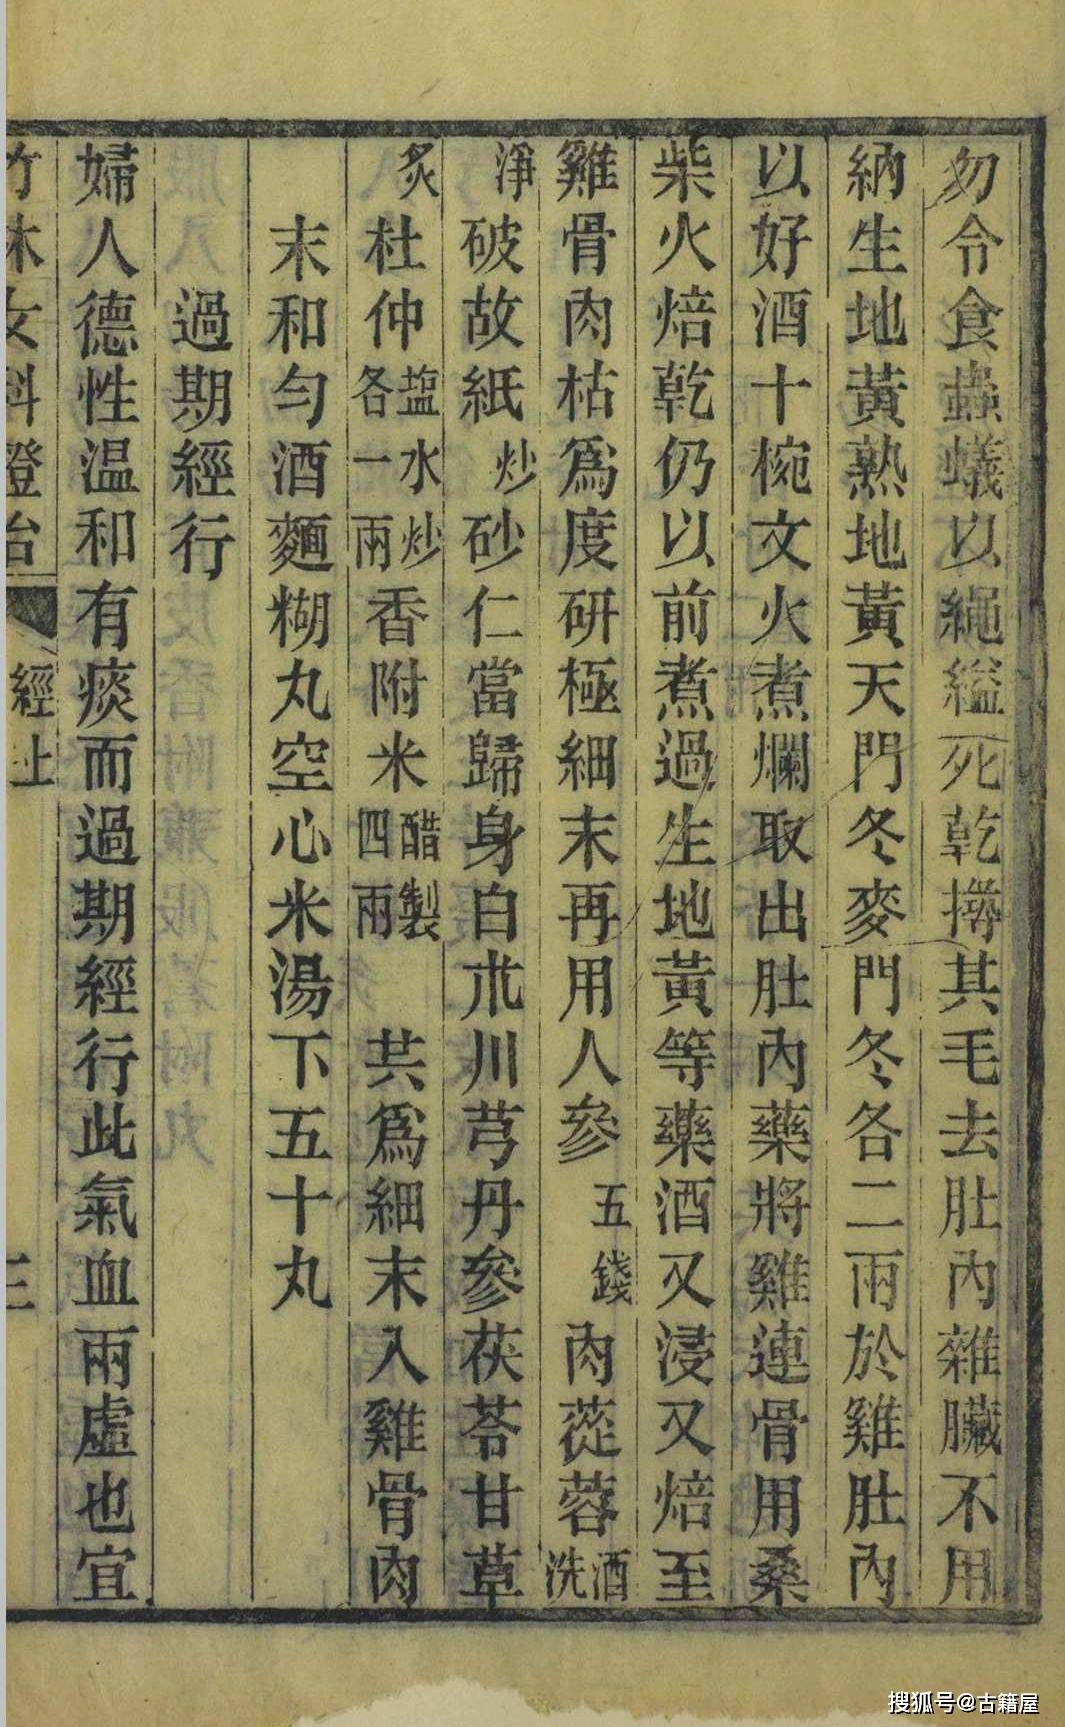 勿令食蟲蟻以繩縊死乾撏其毛去肚內雜臟不用
納生地黃熟地黃天門冬麥門冬各二兩於雞肚內
以好酒十椀文火煮爛取出肚內藥將雞連骨用桑
柴火焙乾仍以前煮過生地黃等藥酒又浸又焙至
雞骨肉枯爲度研極細末再用人參五錢肉蓯蓉酒洗
淨破故紙炒砂仁當歸身白朮川芎丹參茯苓甘草
炙杜仲塩水炒各一兩香附米醋製四兩共爲細末入雞骨肉
末和勻酒麵糊丸空心米湯下五十丸
過期經行
婦人德性温和有痰而過期經行此氣血兩虛也宜
竹林女科證治 經上 三
搜狐号@古籍屋